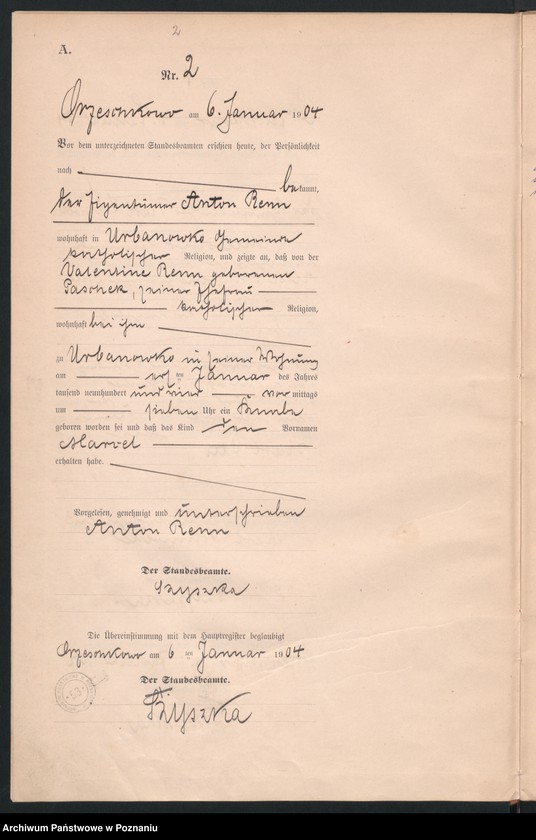 2
A.
Nr. 2
Orzeschkowo am 6. Januar 1904
Vor dem unterzeichneten Standesbeamten erschien heute, der Persönlichkeit
nach bekannt,
der Eigentümer Anton Renn
wohnhaft in Urbanowko Gemeinde
katholischer Religion, und zeigte an, daß von der
Valentine Renn geborenen
Paschek, seiner Ehefrau
katholischer Religion,
wohnhaft bei ihm
zu Urbanowko in seiner Wohnung
am ten Januar des Jahres
tausend neunhundert und vier vor mittags
um sieben Uhr ein Knabe
geboren worden sei und daß das Kind den Vornamen
Marcel
erhalten habe.
Vorgelesen, genehmigt und unterschrieben
Anton Renn
Der Standesbeamte.
Szyszka
Die Übereinstimmung mit dem Hauptregister beglaubigt
Orzeschkowo am 6 ten Januar 1904
Der Standesbeamte.
Szyszka
Archiwum Państwowe w Poznaniu